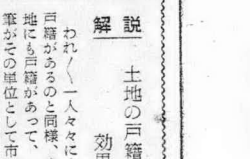 解説
土地の戸籍
効果
われ〱一人々々に
戸籍があるのと同様、
地にも戸籍があって、
筆がその単位として市